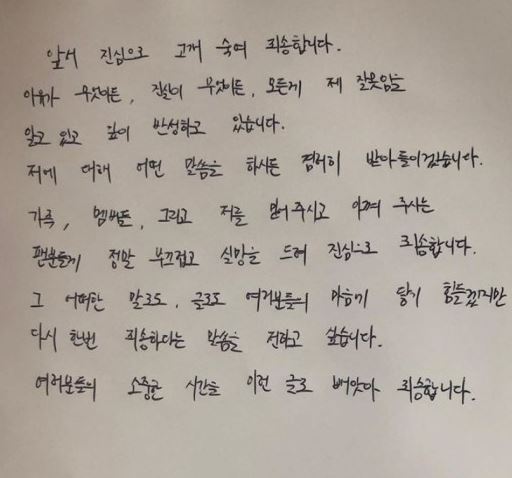 앞서 진심으로 고개 숙여 죄송합니다.
이유가 무엇이든, 진실이 무엇이든, 모든게 제 잘못임을
알고 있고 깊이 반성하고 있습니다.
저에 대해 어떤 말씀을 하시든 겸허히 받아들이겠습니다.
가족, 멤버들, 그리고 저를 믿어주시고 아껴 주시는
팬분들께 정말 부끄럽고 실망을 드려 진심으로 죄송합니다.
그 어떠한 말로도, 글로도 여러분들의 마음에 닿기 힘들겠지만
다시 한번 죄송하다는 말씀을 전하고 싶습니다.
여러분들의 소중한 시간을 이런 글로 빼앗아 죄송합니다.